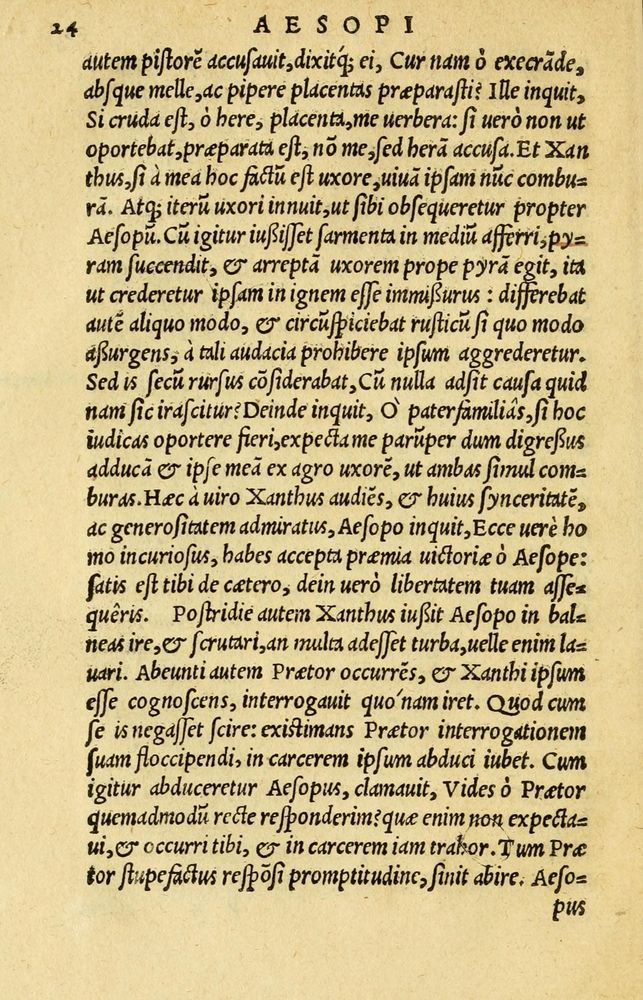 24 AESOPI
autem piſtorē accuſauit, dixitq́; ei, Cur nam ò execrāde,
abſque melle, ac pipere placentas præparaſti? Ille inquit,
Si cruda eſt, ò here, placenta, me uerbera: ſi uerò non ut
oportebat, præparata eſt, nō me, ſed herā accuſa. Et Xan
thus, ſi à mea hoc factū eſt uxore, uiuā ipſam nūc combu-
rā. Atq; iterū uxori innuit, ut ſibi obſequeretur propter
Aeſopū. Cū igitur iußiſſet ſarmenta in mediū afferri, py-
ram ſuccendit, & arreptā uxorem prope pyrā egit, ita
ut crederetur ipſam in ignem eſſe immißurus : differebat
autē aliquo modo, & circūſpiciebat ruſticū ſi quo modo
aßurgens, à tali audacia prohibere ipſum aggrederetur.
Sed is ſecū rurſus cōſiderabat, Cū nulla adſit cauſa quid
nam ſic iraſcitur? Deinde inquit, Ò paterfamiliâs, ſi hoc
iudicas oportere fieri, expecta me parūper dum digreßus
adducā & ipſe meā ex agro uxorē, ut ambas ſimul com-
buras. Hæc à uiro Xanthus audiēs, & huius ſynceritatē,
ac generoſitatem admiratus, Aeſopo inquit, Ecce uerè ho
mo incurioſus, habes accepta præmia uictoriæ ò Aeſope:
ſatis eſt tibi de cætero, dein uerò libertatem tuam aſſe-
quêris. Poſtridie autem Xanthus iußit Aeſopo in bal-
neas ire, & ſcrutari, an multa adeſſet turba, uelle enim la-
uari. Abeunti autem Prætor occurrēs, & Xanthi ipſum
eſſe cognoſcens, interrogauit quo'nam iret. Quod cum
ſe is negaſſet ſcire: exiſtimans Prætor interrogationem
ſuam floccipendi, in carcerem ipſum abduci iubet. Cum
igitur abduceretur Aeſopus, clamauit, Vides ò Prætor
quemadmodū recte reſponderim? quæ enim non expecta-
ui, & occurri tibi, & in carcerem iam trahor. Tum Præ
tor ſtupefactus reſpōſi promptitudine, ſinit abire. Aeſo-
pus